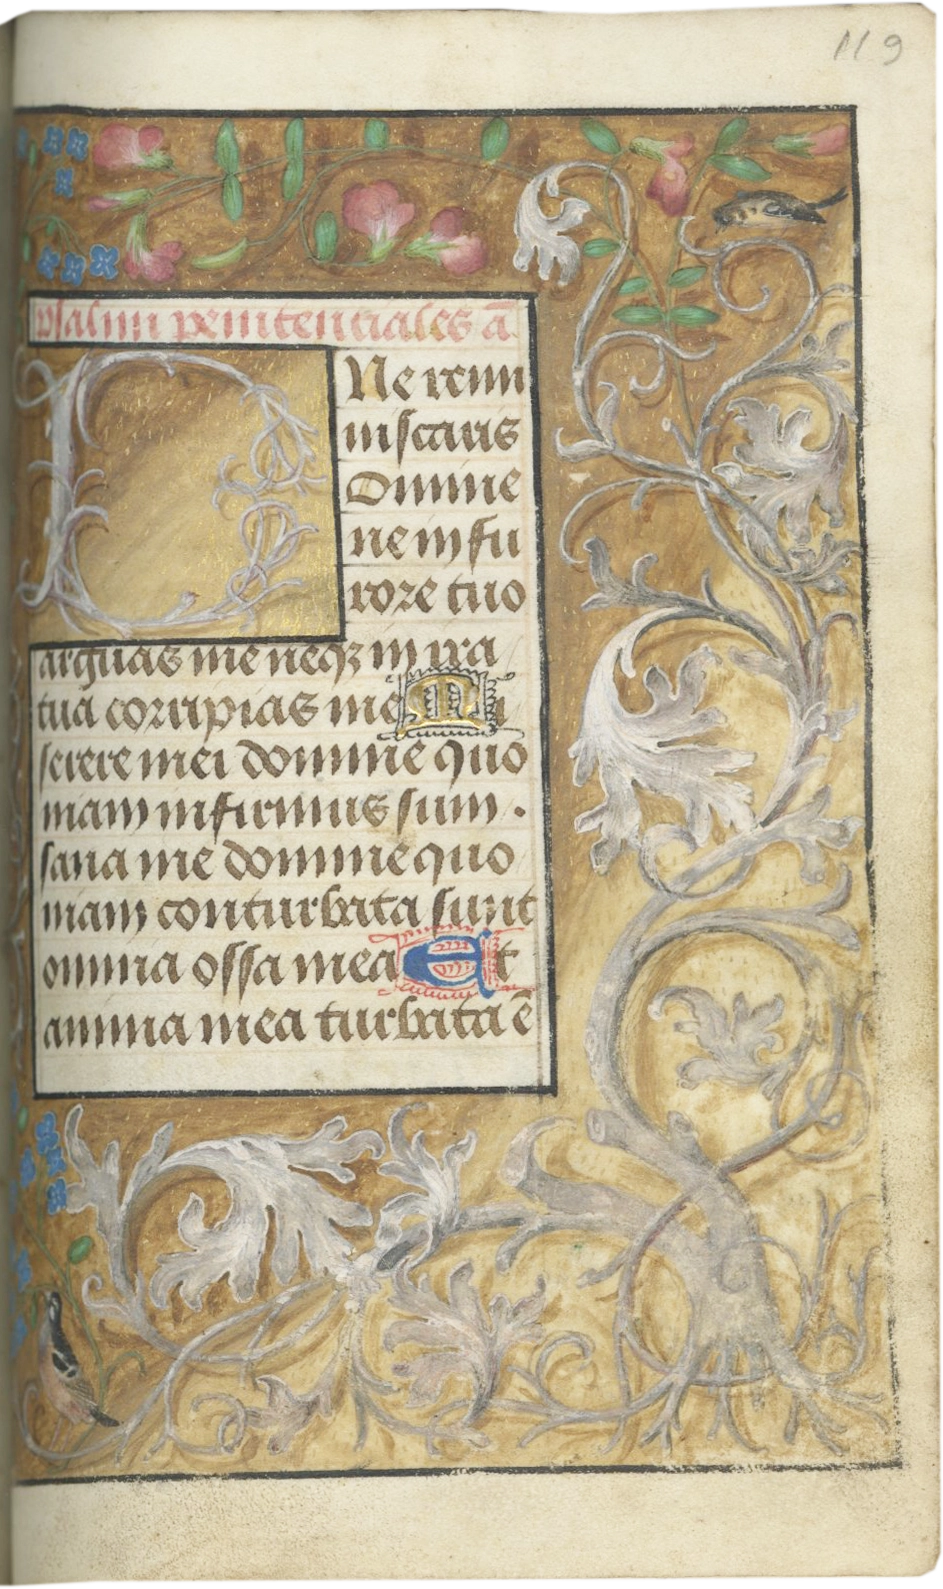 119
psalmi penitenciales añ.
DNe remi
niscaris
Domine
ne in fu
rore tuo
arguas me neqȝ in ira
tua corripias me Mi
serere mei domine quo
niam infirmus sum .
sana me domine quo
niam conturbata sunt
omnia ossa mea Et
anima mea turbata ē